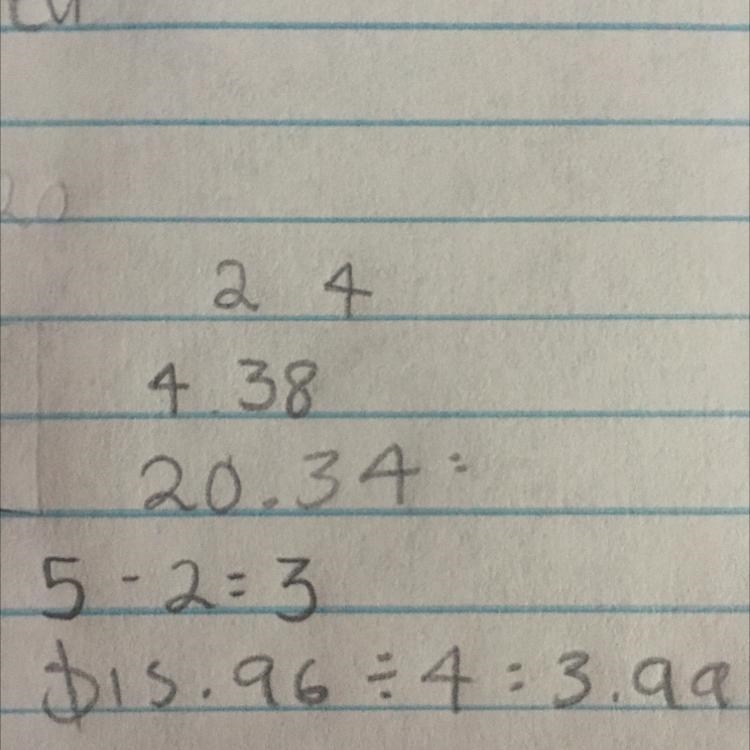 20
2 4
4.38
20.34 =
5 - 2 = 3
$15.96 ÷ 4 = 3.99